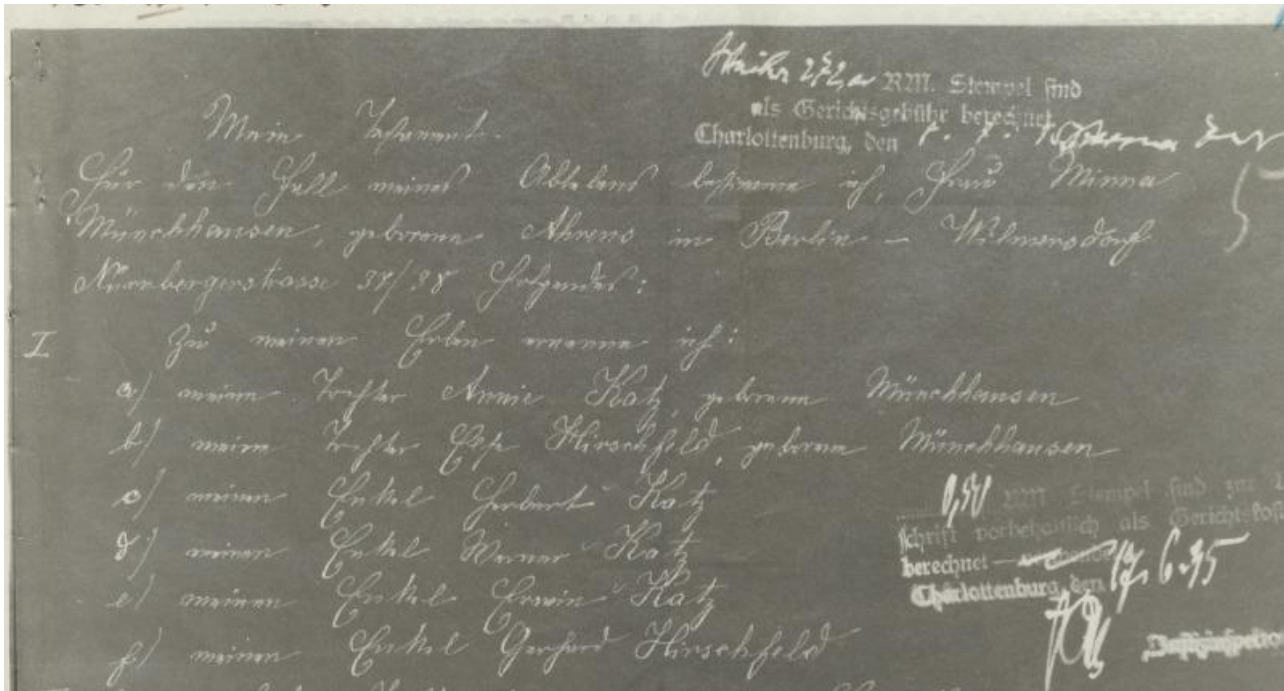 RM. Stempel sind
als Gerichtsgebühr berechnet
Charlottenburg, den
Mein Testament.
Für den Fall meines Ablebens bestimme ich, Frau Minna
Münchhausen, geborene Ahrens in Berlin – Wilmersdorf
Nürnbergerstrasse 37/38 Folgendes:
I Zu meinen Erben ernenne ich:
a) meine Tochter Annie Katz, geborene Münchhausen
b) meine Tochter Else Hirschfeld, geborene Münchhausen
c) meinen Enkel Herbert Katz
d) meinen Enkel Werner Katz
e) meinen Enkel Erwin Katz
f) meinen Enkel Gerhard Hirschfeld
0,50 RM. Stempel sind zur
schrift vorbehaltlich als Gerichtskost
berechnet –
Charlottenburg, den
Justizinspekto